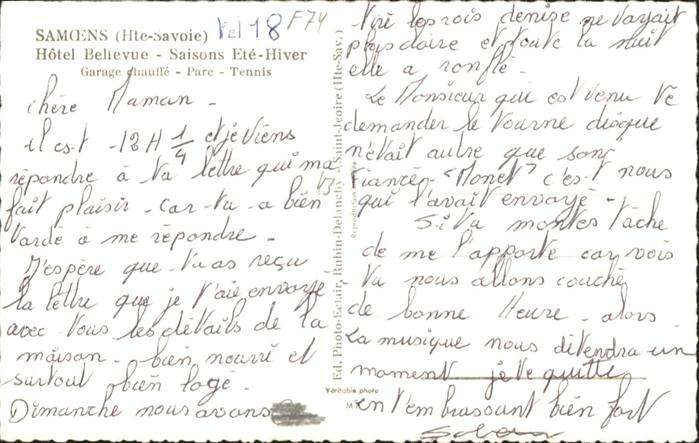 SAMOENS (Hte-Savoie)
Hôtel Bellevue - Saisons Eté-Hiver
Garage chauffé - Parc - Tennis
Vel 18 F74
chère Maman -
il est - 12 H 1/4 et je viens
répondre à ta lettre qui ma
fait plaisir - car tu - a bien
tardé à me répondre -
J'espère que tu as reçu
la lettre que je t'aie envoyé
avec tous les détails de la
maison - bien nourri et
surtout bien logé -
Dimanche nous avons
tiré les rois denise ne voyait
plus claire et toute la nuit
elle a ronflé -
Le Monsieur qui est venu te
demander le tourne disque
n'était autre que son
Fiancée - "Monet" c'est nous
qui l'avait envoyé -
Si tu montes tâche
de me l'apporte car vois
tu nous allons couché
de bonne heure - alors
La musique nous détendra un
moment je te quitte
en t'embrassant bien fort
Ed. Photo-Eclair, Rubin-Delanchy - Saint-Jeoire (Hte-Sav.)
Véritable photo